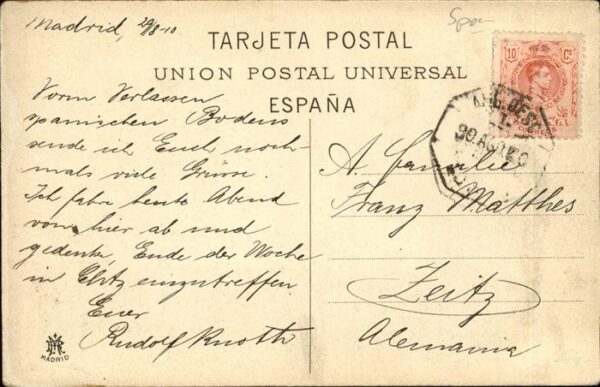 Madrid, 29/8-10
Span
TARJETA POSTAL
UNION POSTAL UNIVERSAL
ESPAÑA
Vorm Verlassen
spanischen Bodens
sende ich Euch noch-
mals viele Grüsse.
Ich fahre heute Abend
von hier ab und
gedenke, Ende der Woche
in einzutreffen
Euer
Rudolf Knoth
10 Cs
CORREOS
30 AGO 10
A. familie
Franz Matthes
Zeitz
Alemania
MADRID